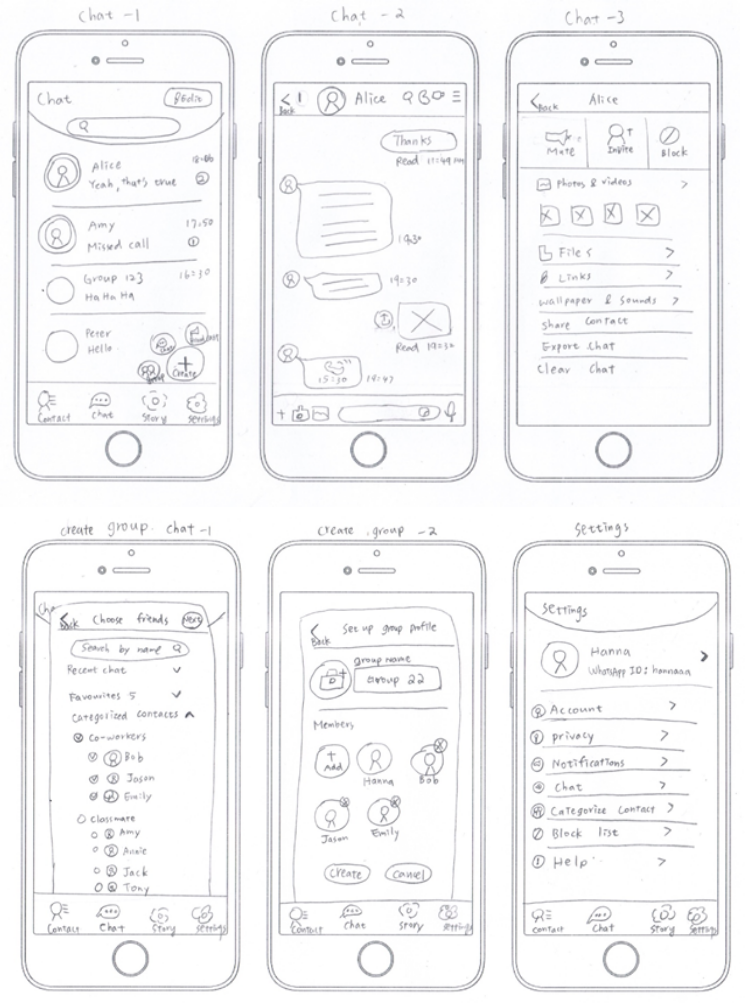 Chat -1
Chat
Edit
Alice
18:06
Yeah, that's true
2
Amy
17:50
Missed call
1
Group 123
16:30
Ha Ha Ha
Peter
Hello
Create
Contact
Chat
Story
Settings
Chat - 2
Back
1
Alice
Thanks
Read
19:30
19:30
Read 19:32
15:30
19:47
Chat -3
Back
Alice
Mute
Invite
Block
Photos & videos
Files
Links
wallpaper & sounds
share contact
Export chat
Clear chat
create group. chat -1
Back
Choose friends
Next
Search by name
Recent chat
Favourites 5
Categorized contacts
Co-workers
Bob
Jason
Emily
Classmate
Amy
Annie
Jack
Tony
Contact
Chat
Story
Settings
create group -2
Back
Set up group profile
group name
Group 22
Members
Add
Hanna
Bob
Jason
Emily
Create
Cancel
Contact
Chat
Story
Settings
Settings
Settings
Hanna
WhatsApp ID: hannaaa
Account
privacy
Notifications
Chat
Categorize contact
Block list
Help
Contact
Chat
Story
Settings